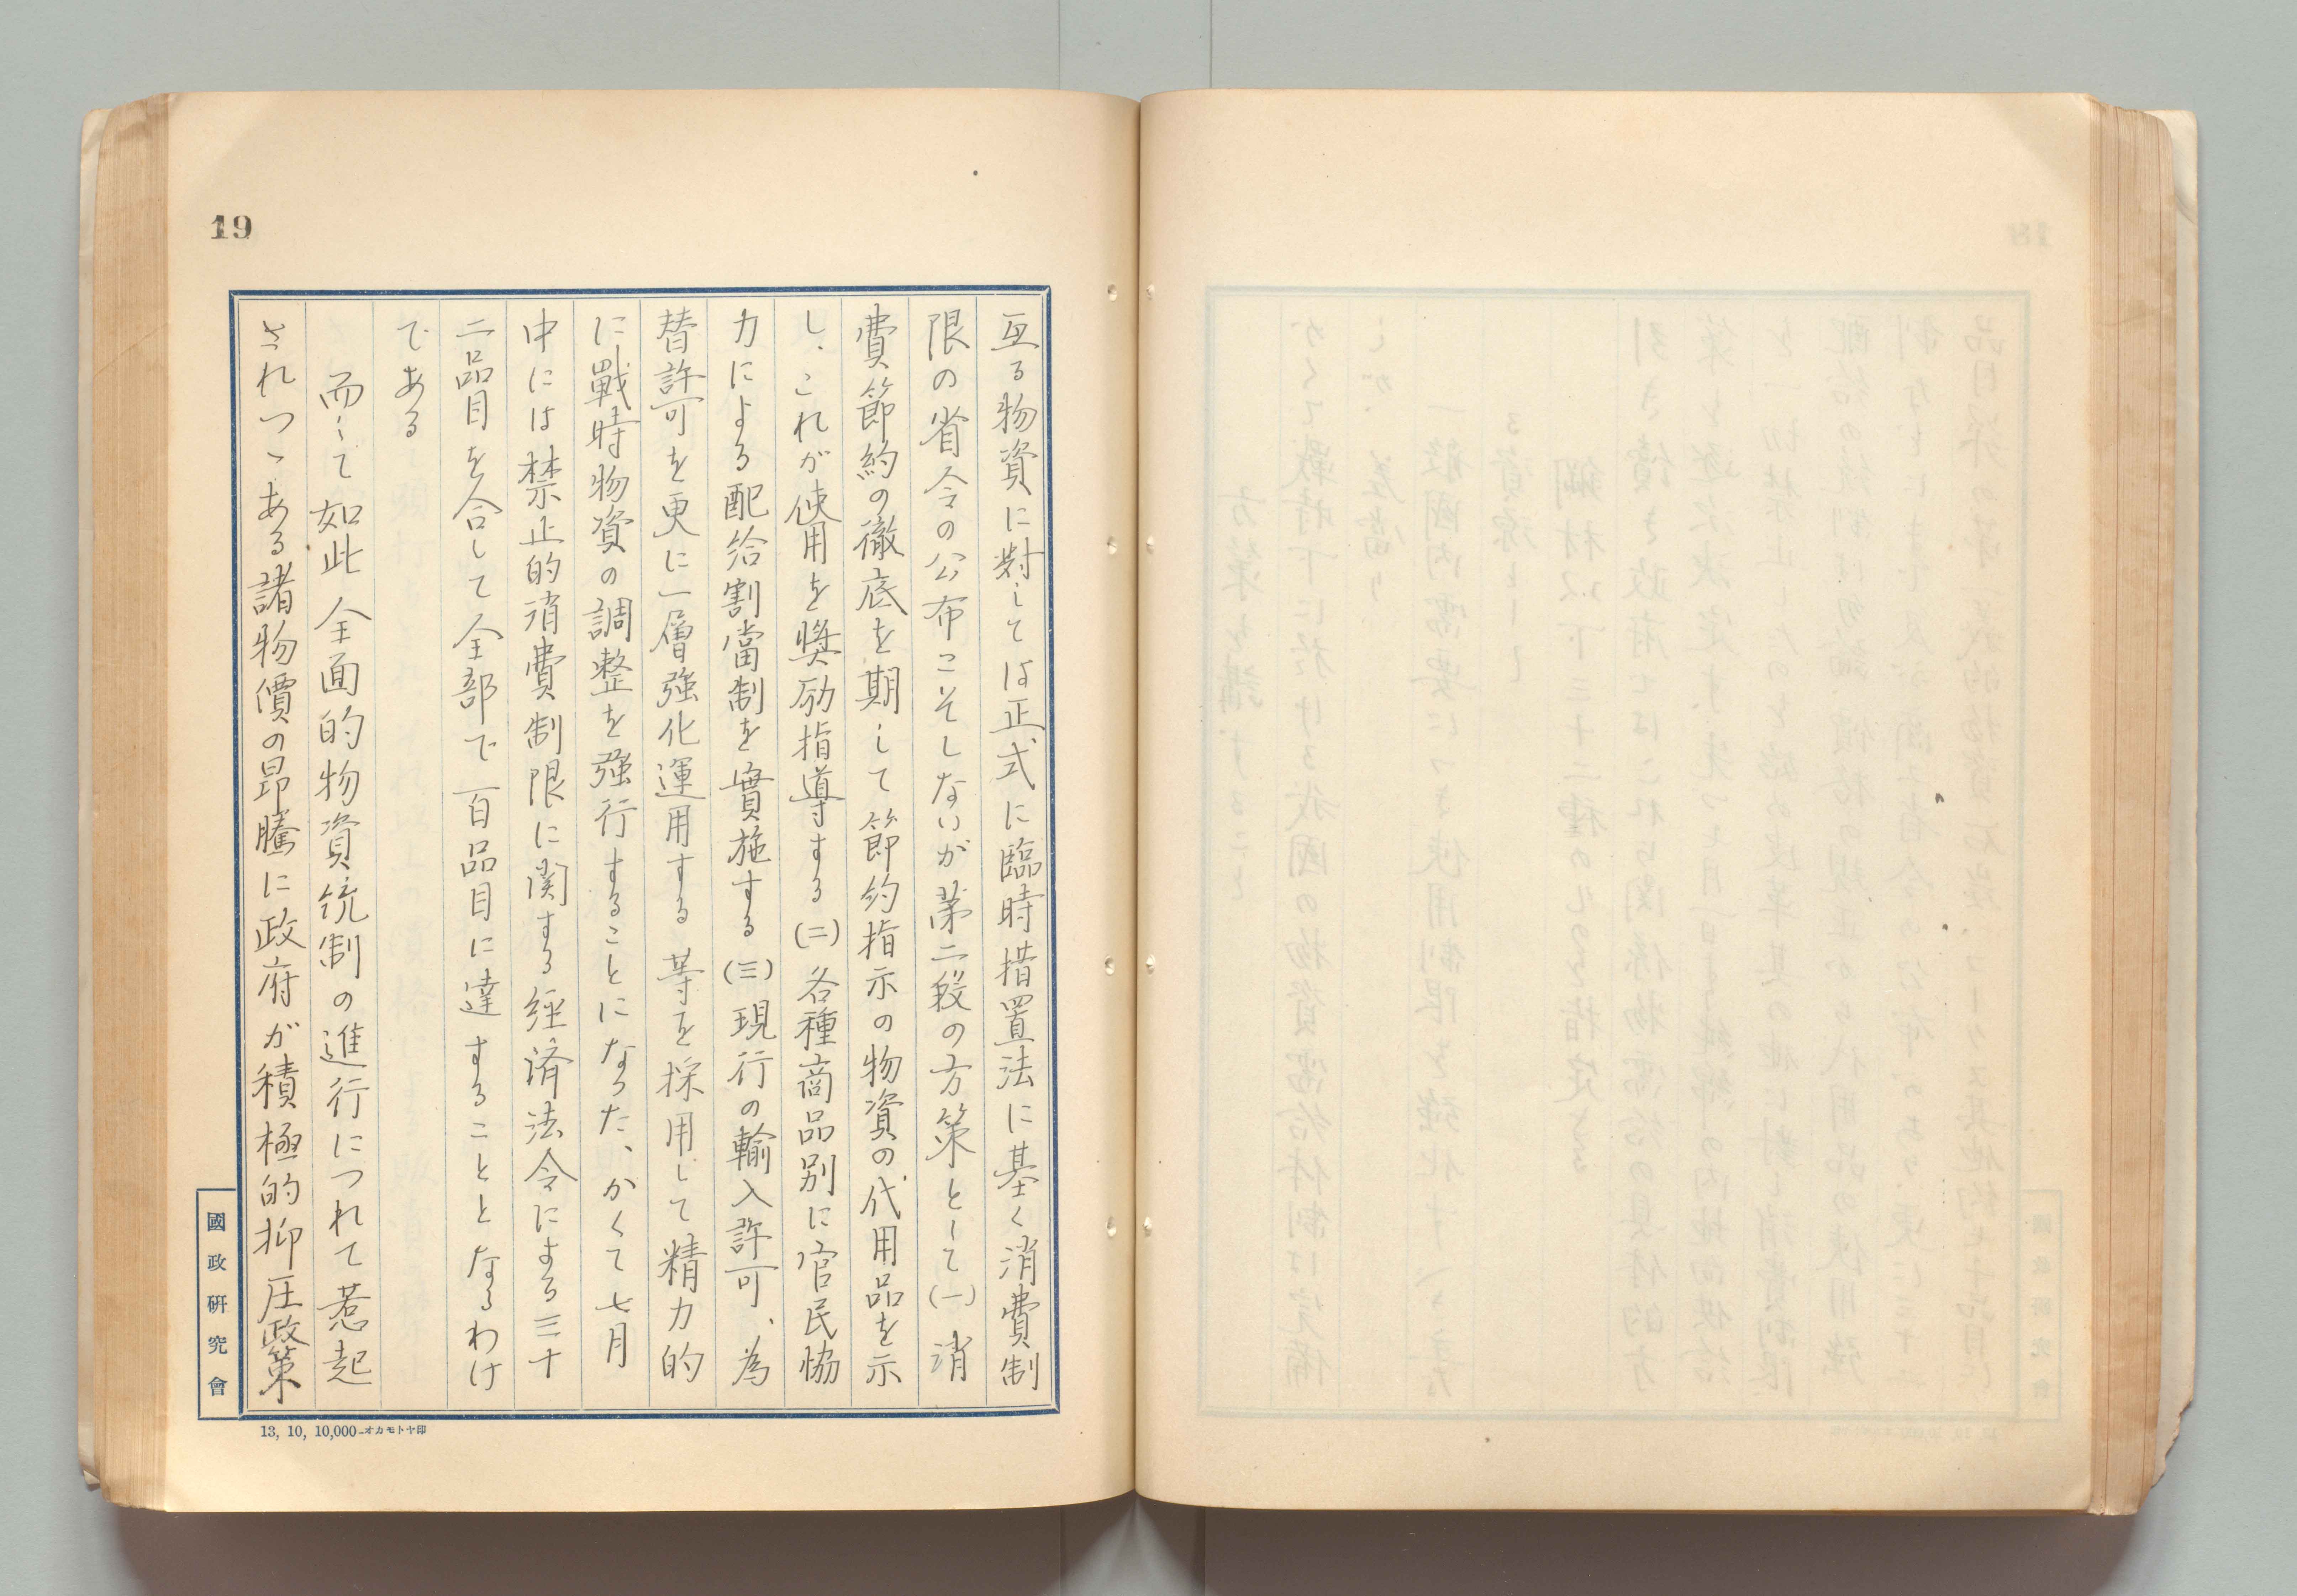 19
亙る物資に對しては正式に臨時措置法に基く消費制
限の省令の公布こそしないが第二段の方策として(一)消
費節約の徹底を期して節約指示の物資の代用品を示
し、これが使用を奬励指導する(二)各種商品別に官民協
力による配給割當制を實施する(三)現行の輸入許可、為
替許可を更に一層強化運用する 等を採用して精力的
に戰時物資の調整を強行することになった、かくて七月
中には禁止的消費制限に関する経済法令にする三十
二品目を合して全部で百品目に達することとなるわけ
である
而して如此全面的物資統制の進行につれて惹起
されつゝある諸物價の昂騰に政府が積極的抑圧政策
國政研究會
13, 10, 10,000-オカモトヤ印